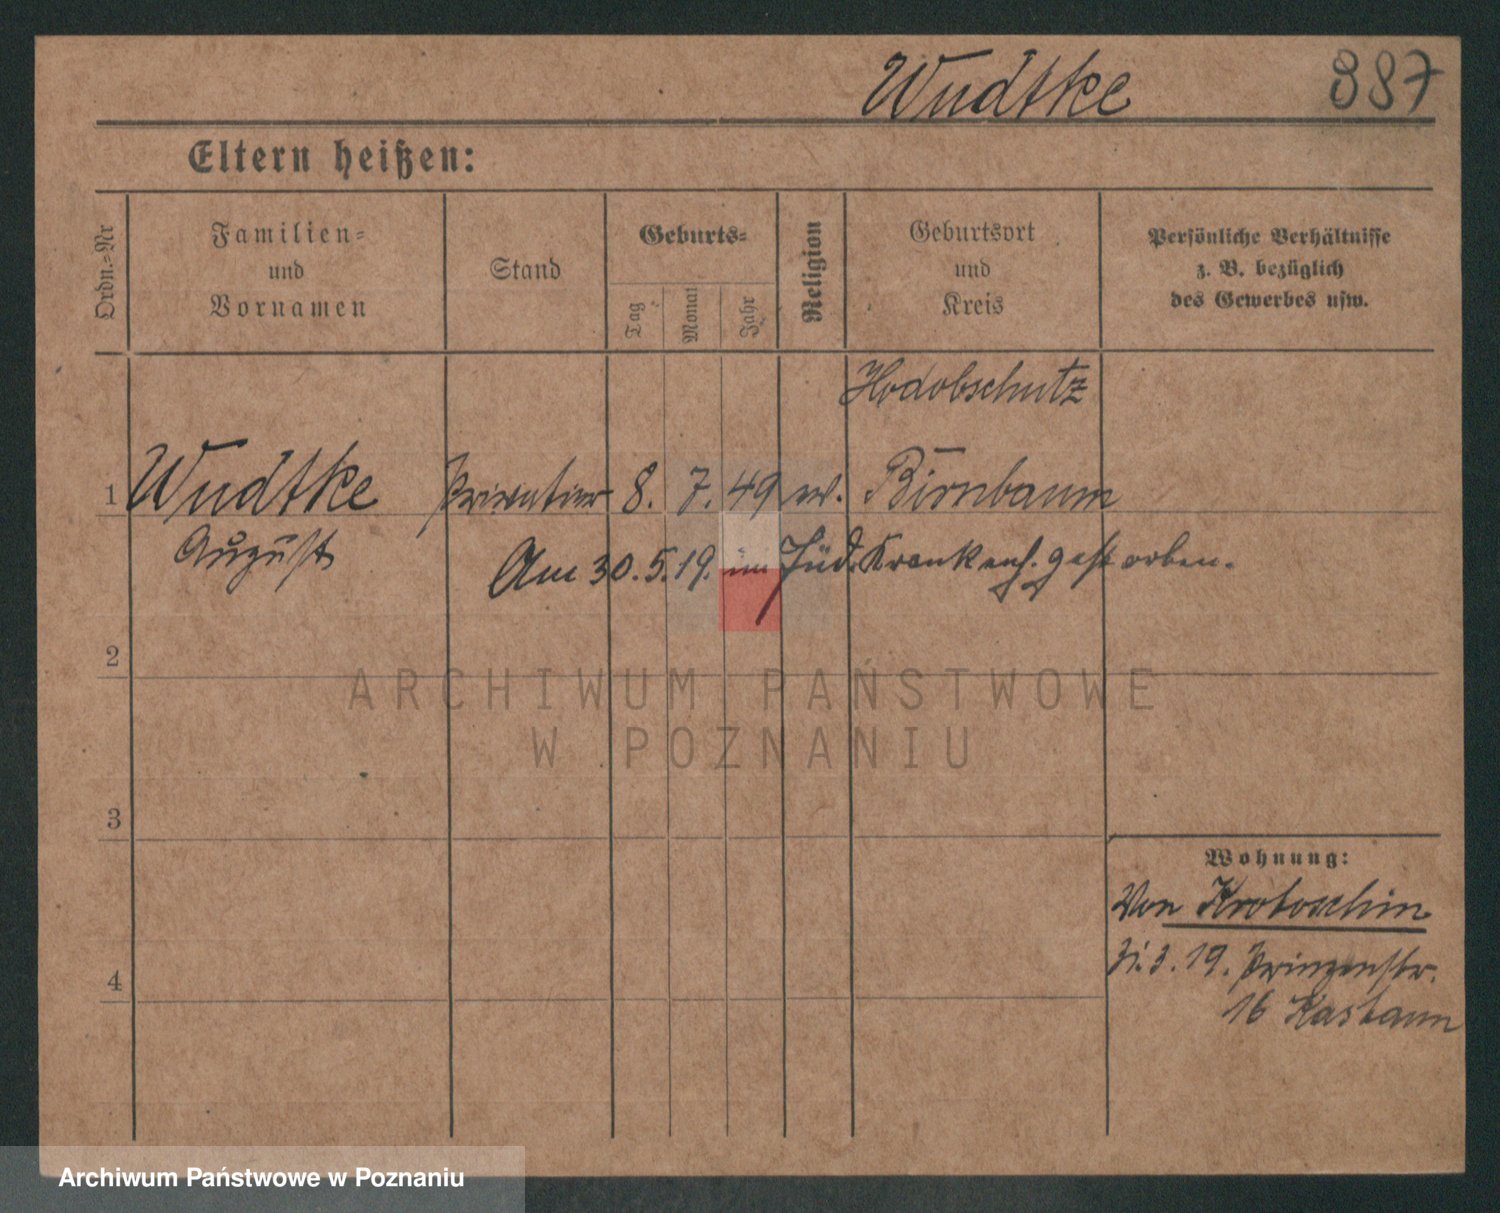 Wudtke 387
Eltern heißen:
Ordn.-Nr
Familien-
und
Vornamen
Stand
Geburts-
Tag
Monat
Jahr
Religion
Geburtsort
und
Kreis
Persönliche Verhältnisse
z. B. bezüglich
des Gewerbes usw.
Hodobschutz
1 Wudtke Privatier 8. 7. 49 ev. Birnbaum
August
Am 30.5.19. im Jüd. Krankenh. gestorben.
2
ARCHIWUM PAŃSTWOWE
W POZNANIU
3
Wohnung:
Von Krotoschin
4
31.3.19. Prinzenstr.
16
Archiwum Państwowe w Poznaniu